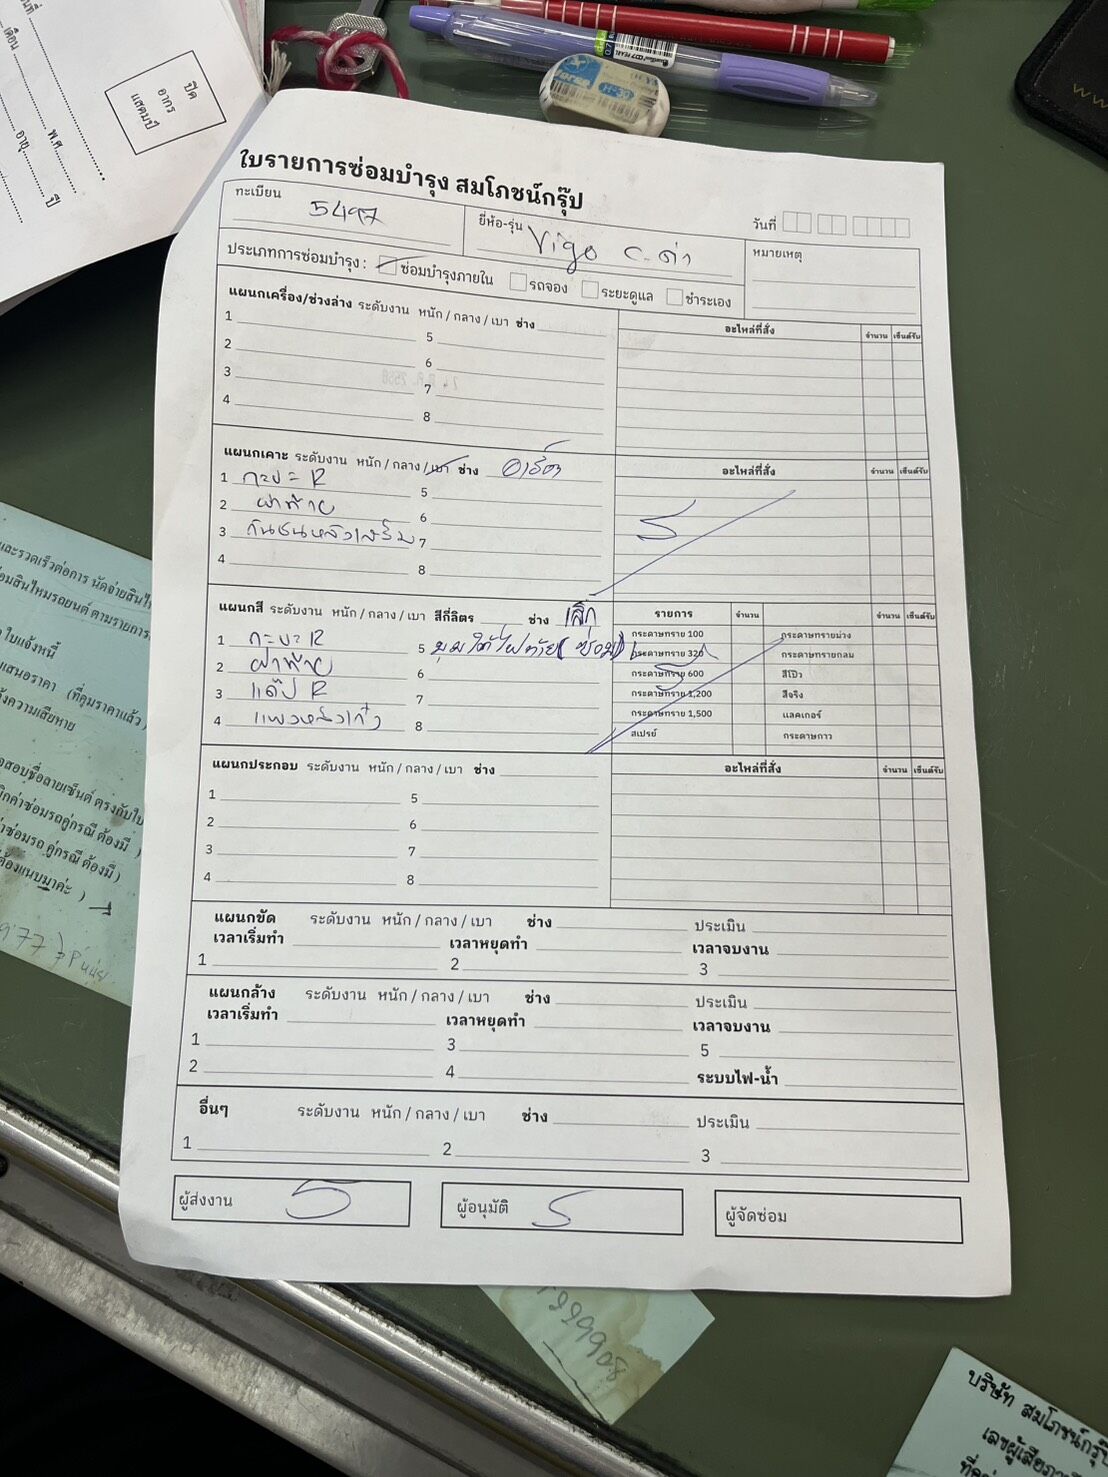 ใบรายการซ่อมบำรุง สมโภชน์กรุ๊ป
ทะเบียน 5497
ยี่ห้อ-รุ่น Vigo c-ดำ
วันที่
หมายเหตุ
ประเภทการซ่อมบำรุง : ซ่อมบำรุงภายใน รถจอง ระยะดูแล ชำระเอง
แผนกเครื่อง/ช่วงล่าง ระดับงาน หนัก / กลาง / เบา ช่าง
อะไหล่ที่สั่ง จำนวน เซ็นต์รับ
1 5
2 6
3 7
4 8
แผนกเคาะ ระดับงาน หนัก / กลาง / เบา ช่าง
อะไหล่ที่สั่ง จำนวน เซ็นต์รับ
1 กะบะ R 5
2 ฝาท้าย 6
3 กันชนหลังเสริม 7
4 8
แผนกสี ระดับงาน หนัก / กลาง / เบา สีกี่ลิตร ช่าง เล็ก
รายการ จำนวน จำนวน เซ็นต์รับ
1 กะบะ R 5 มุมใต้ไฟท้าย (ซ่อม)
2 ฝาท้าย 6
3 แค๊ป R 7
4 แผงหลังเก๋ง 8
กระดาษทราย 100 กระดาษทรายม่วง
กระดาษทราย 320 กระดาษทรายกลม
กระดาษทราย 600 สีโป๊ว
กระดาษทราย 1,200 สีจริง
กระดาษทราย 1,500 แลคเกอร์
สเปรย์ กระดาษกาว
แผนกประกอบ ระดับงาน หนัก / กลาง / เบา ช่าง
อะไหล่ที่สั่ง จำนวน เซ็นต์รับ
1 5
2 6
3 7
4 8
แผนกขัด ระดับงาน หนัก / กลาง / เบา ช่าง ประเมิน
เวลาเริ่มทำ เวลาหยุดทำ เวลาจบงาน
1 2 3
แผนกล้าง ระดับงาน หนัก / กลาง / เบา ช่าง ประเมิน
เวลาเริ่มทำ เวลาหยุดทำ เวลาจบงาน
1 3 5
2 4 ระบบไฟ-น้ำ
อื่นๆ ระดับงาน หนัก / กลาง / เบา ช่าง ประเมิน
1 2 3
ผู้ส่งงาน
ผู้อนุมัติ
ผู้จัดซ่อม
ปิด
อากร
แสตมป์
เดือน พ.ศ.
อายุ ปี
และรวดเร็วต่อการ นัดจ่ายสินไหม
ซ่อมสินไหมรถยนต์ ตามรายการ
ใบแจ้งหนี้
เสนอราคา (ที่คุมราคาแล้ว)
ความเสียหาย
สอบชื่อลายเซ็นต์ ตรงกับใบ
ค่าซ่อมรถคู่กรณี ต้องมี )
ค่าซ่อมรถ คู่กรณี ต้องมี)
ต้องแนบมาค่ะ )
บริษัท สมโภชน์กรุ๊ป